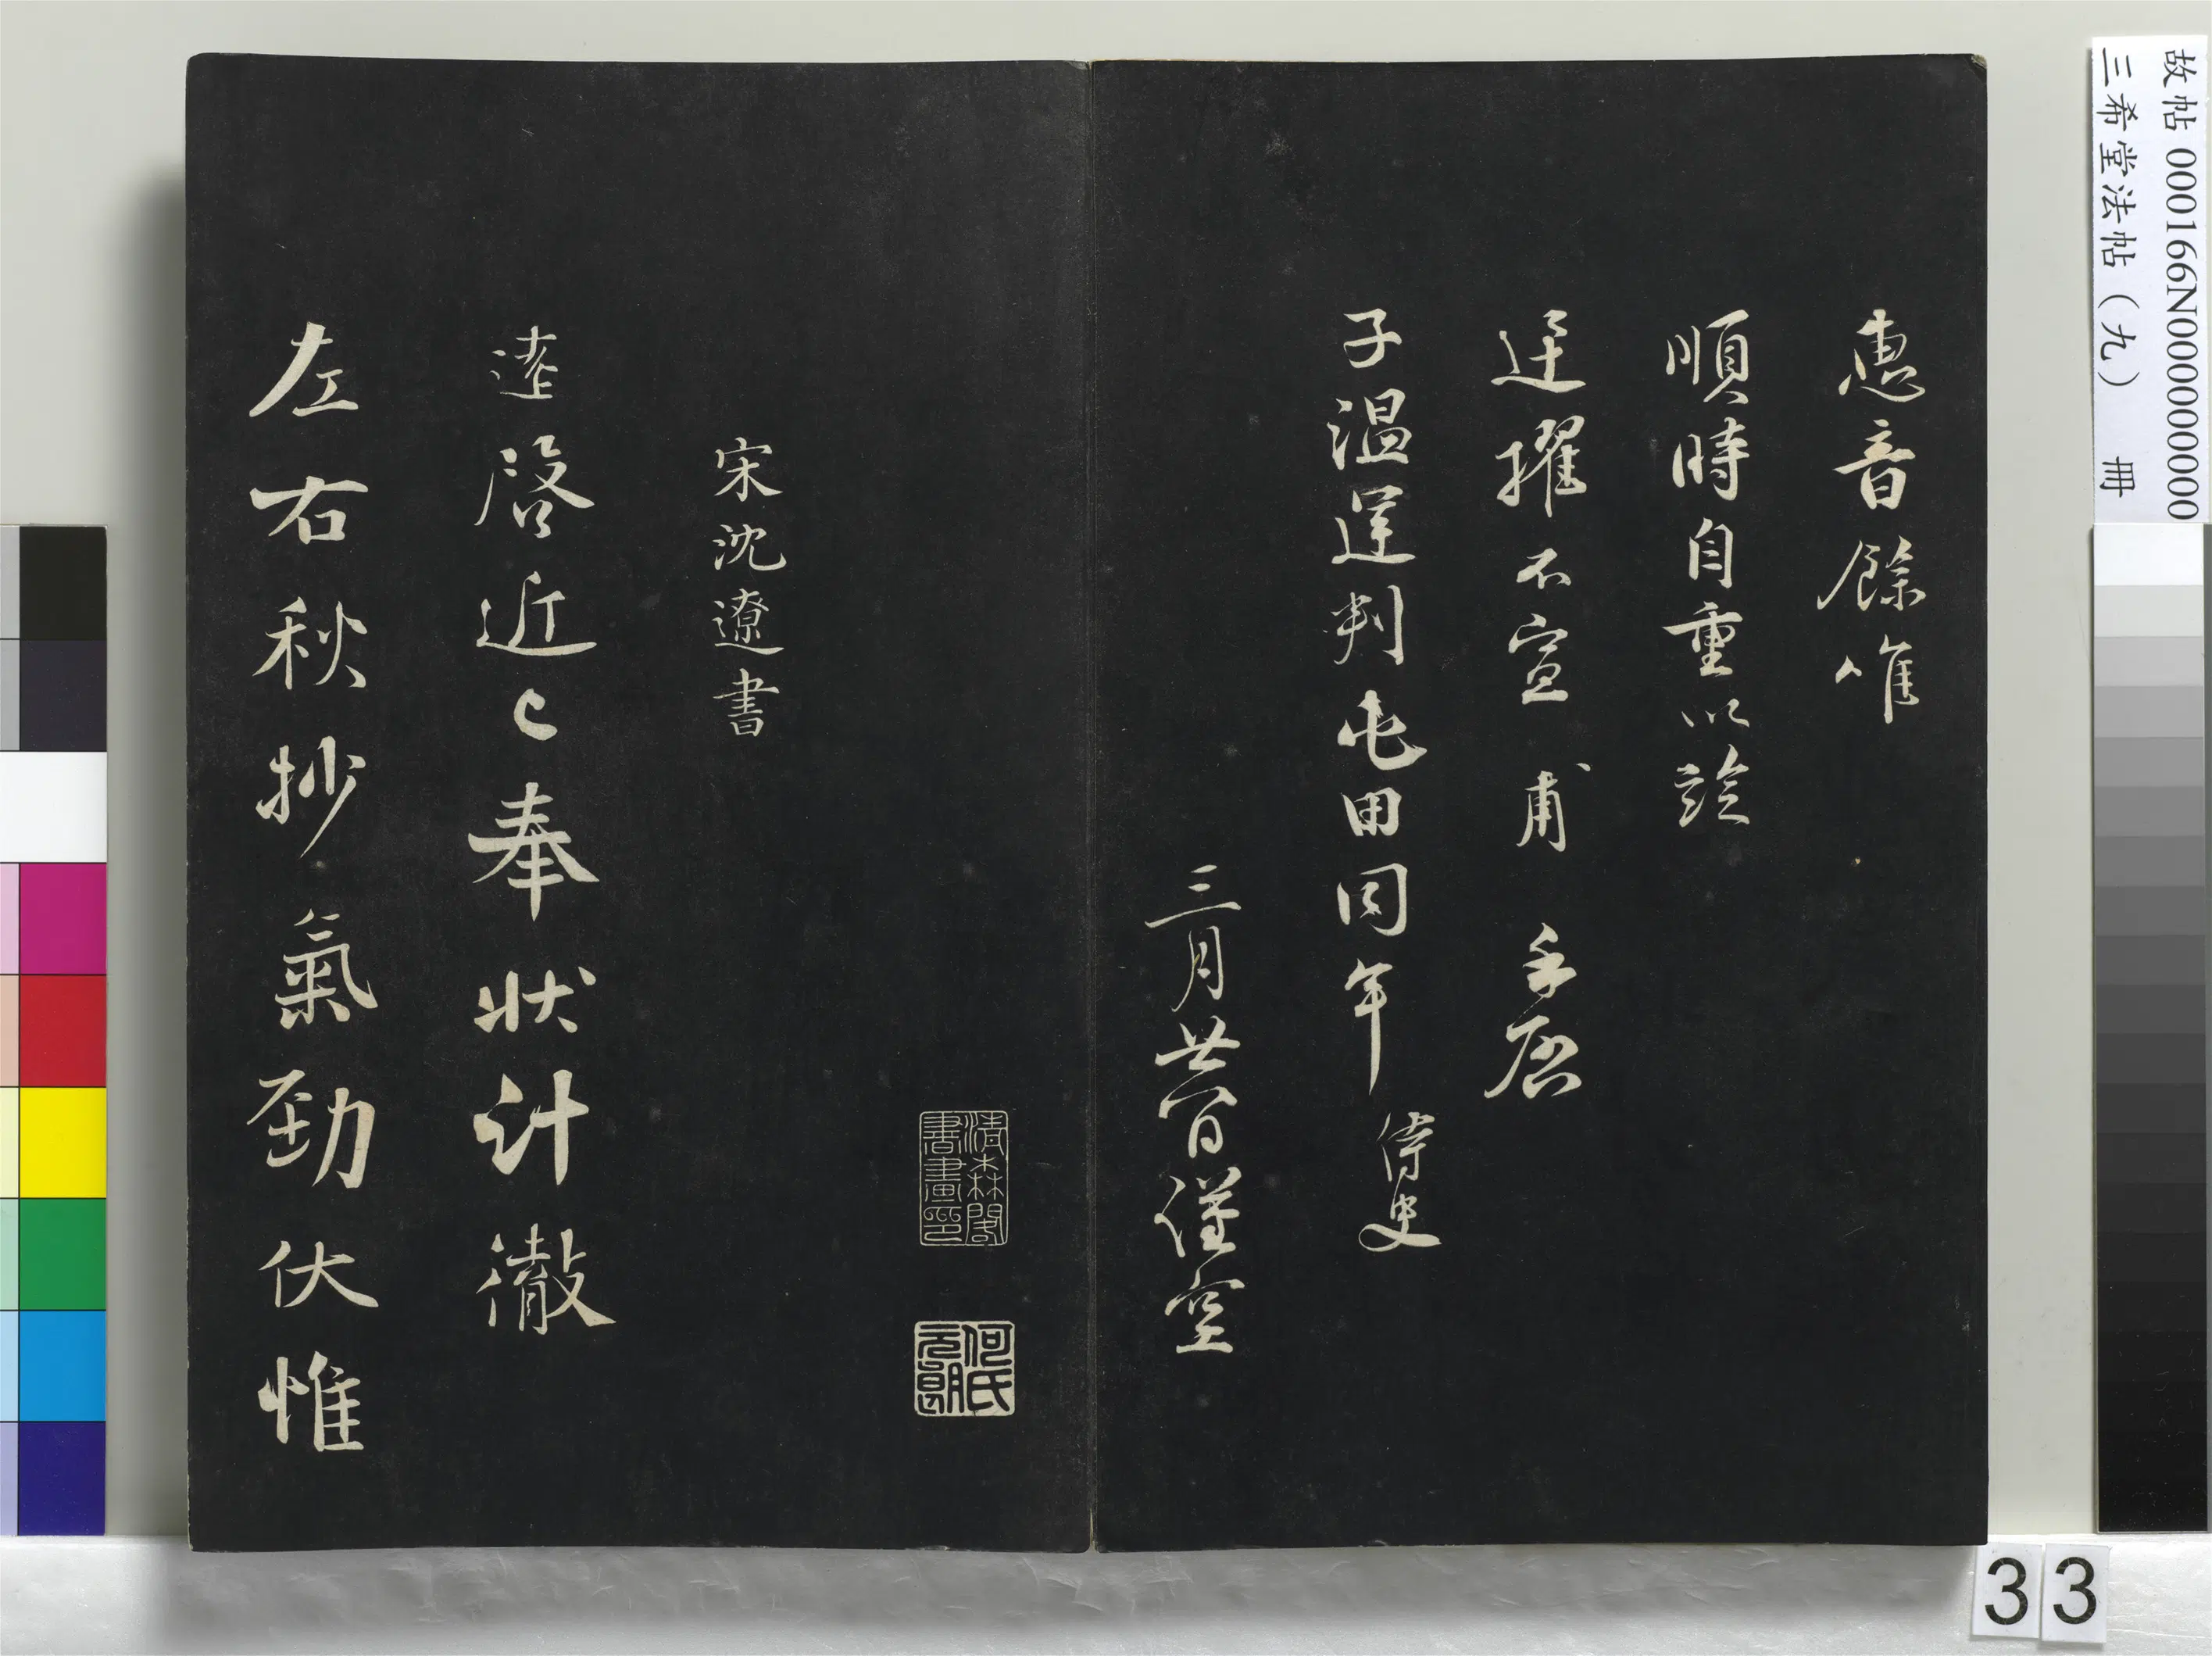 惠音餘惟
順時自重以詮
迁擢不宣 甫 手啓
子溫運判屯田同年 侍史
三月廿一日謹空
清森閣書畫印
何氏元朗
宋沈遼書
遼啓近已奉狀計徹
左右秋抄氣勁伏惟
故帖 000166N000000000
三希堂法帖（九） 冊
33